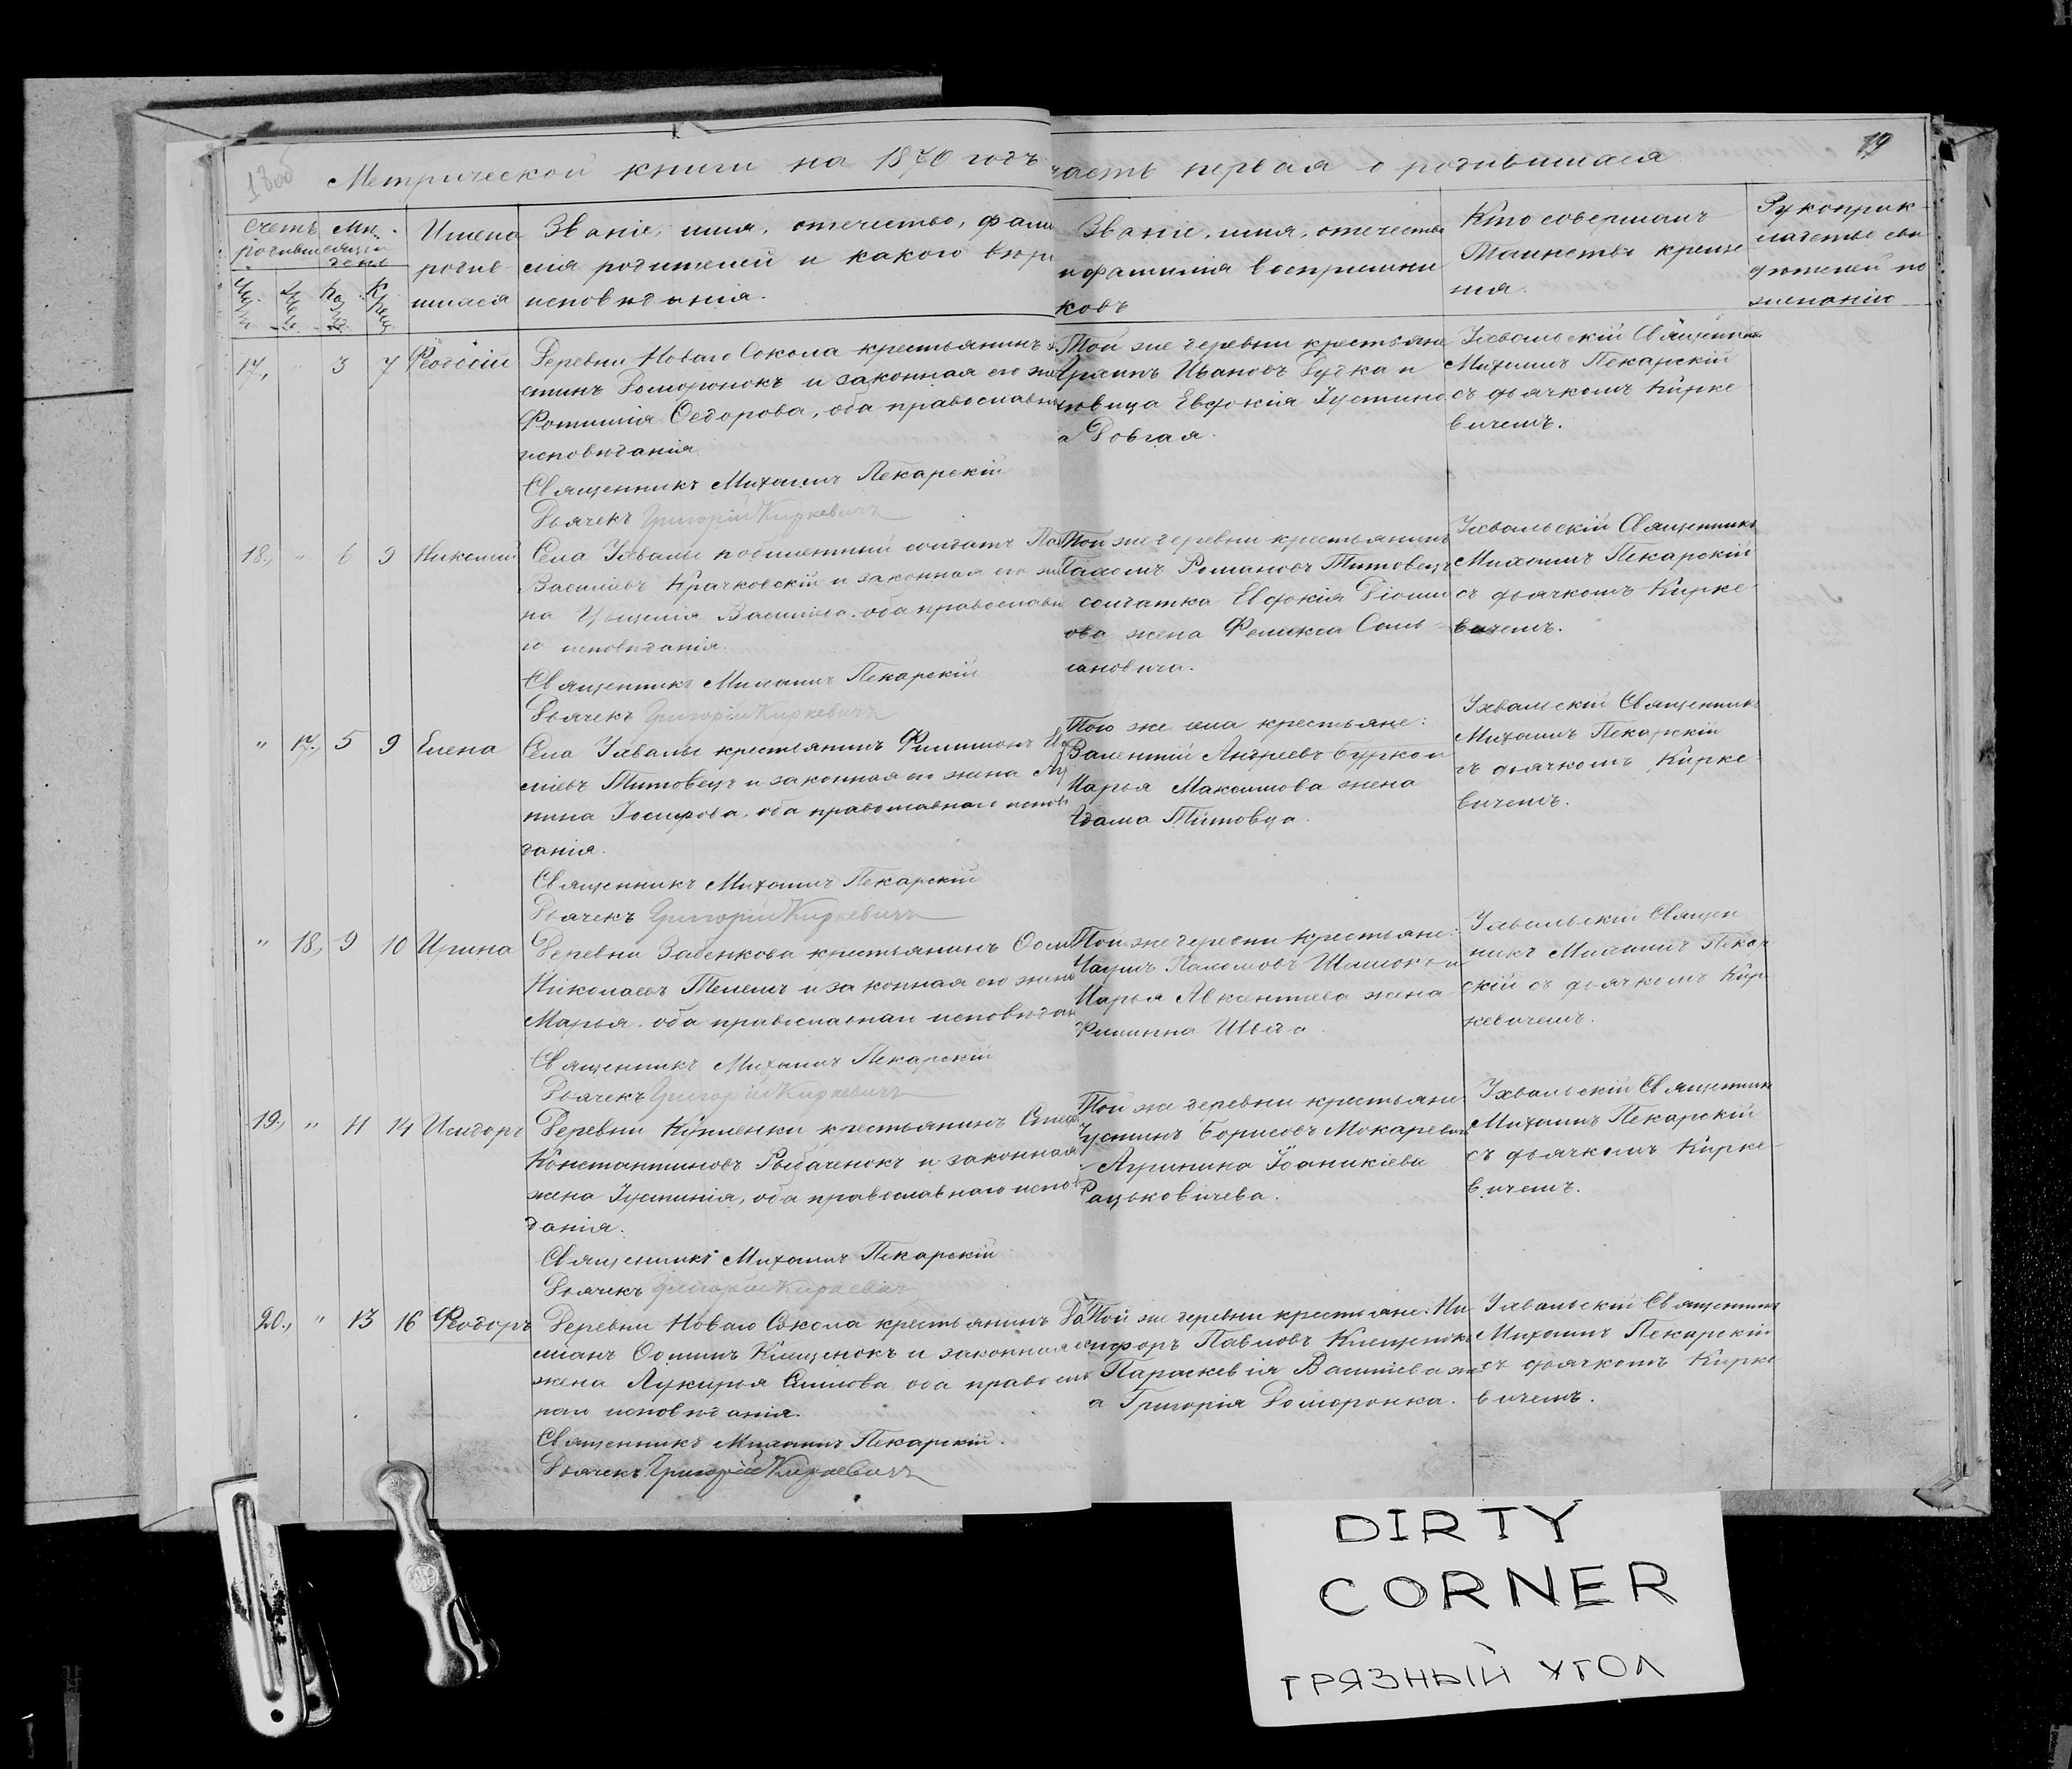 Метрической книги на 1870 годъ часть первая о родившихся
19
Счетъ родивш
Мѣсяцъ день
Имена родив-
шихся
Званіе, имя, отечество, фами
лія родителей и какого вѣро
исповѣданія.
Званіе, имя, отечество
и фамилія воспріемни
ковъ
Кто совершалъ
Таинство креще
нія.
Рукоприк-
ладство сви
дѣтелей по
желанію
17, " 3 7 Ѳеодосій
Деревни Новаго Сокола крестьянинъ
стинъ Доморонокъ и законная его же
Фотинія Ѳедорова, оба православна
исповѣданія
Священникъ Михаилъ Пекарскій
Дьячекъ Григорій Киркевичъ
Той же деревни крестьяне
Иванъ Дудка и
вица Евдокія Іустино
а Довгая.
Ухвальскій Священникъ
Михаилъ Пекарскій
съ дьячкомъ Кирке
вичемъ.
18, " 6 9 Николай
Села Ухвалы побилетный солдатъ
Васильевъ Крачковскій и законная его же
на Васильева, оба православна
го исповѣданія.
Священникъ Михаилъ Пекарскій
Дьячекъ Григорій Киркевичъ
Той же деревни крестьянинъ
Романовъ Титовецъ
солдатка Евдокія
ова жена Феликса
ановича.
Ухвальскій Священникъ
Михаилъ Пекарскій
съ дьячкомъ Кирке-
вичемъ.
" 17, 5 9 Елена
Села Ухвалы крестьянинъ Филимонъ
Титовецъ и законная его жена
Іосифова, оба православнаго исповѣ
данія.
Священникъ Михаилъ Пекарскій
Дьячекъ Григорій Киркевичъ
Того же села крестьяне:
Валентій Андреевъ Бурко и
Марья Максимова жена
Адама Титовца.
Ухвальскій Священникъ
Михаилъ Пекарскій
съ дьячкомъ Кирке-
вичемъ.
" 18, 9 10 Ирина
Деревни Заденкова крестьянинъ
Николаевъ и законная его жена
Марья, оба православнаго исповѣдан
Священникъ Михаилъ Пекарскій
Дьячекъ Григорій Киркевичъ
Той же деревни крестьяне:
Пахомовъ и
Марья Авксентьева жена
Филиппа
Ухвальскій Священ
никъ Михаилъ Пекар
скій съ дьячкомъ Кир
кевичемъ.
19, " 11 14 Исидоръ
Деревни крестьянинъ Стеф
Константиновъ Рыбаченокъ и законная
жена Іустинія, оба православнаго исповѣ
данія.
Священникъ Михаилъ Пекарскій
Дьячекъ Григорій Киркевичъ
Той же деревни крестьяне
Іустинъ Борисовъ Макаревичъ
и Агрипина Іоаникіева
Рацьковичева.
Ухвальскій Священникъ
Михаилъ Пекарскій
съ дьячкомъ Кирке-
вичемъ.
20, " 13 16 Ѳеодоръ
Деревни Новаго Сокола крестьянинъ Да
міанъ Клещенокъ и законная его
жена Лукирья оба православ
наго исповѣданія.
Священникъ Михаилъ Пекарскій.
Дьячекъ Григорій Киркевичъ
Той же деревни крестьяне: Ни
кифоръ Павловъ Клещенокъ
Параскевія Васильева же
а Григорія Доморонка.
Ухвальскій Священникъ
Михаилъ Пекарскій
съ дьячкомъ Кирке
вичемъ.
DIRTY
CORNER
ГРЯЗНЫЙ УГОЛ